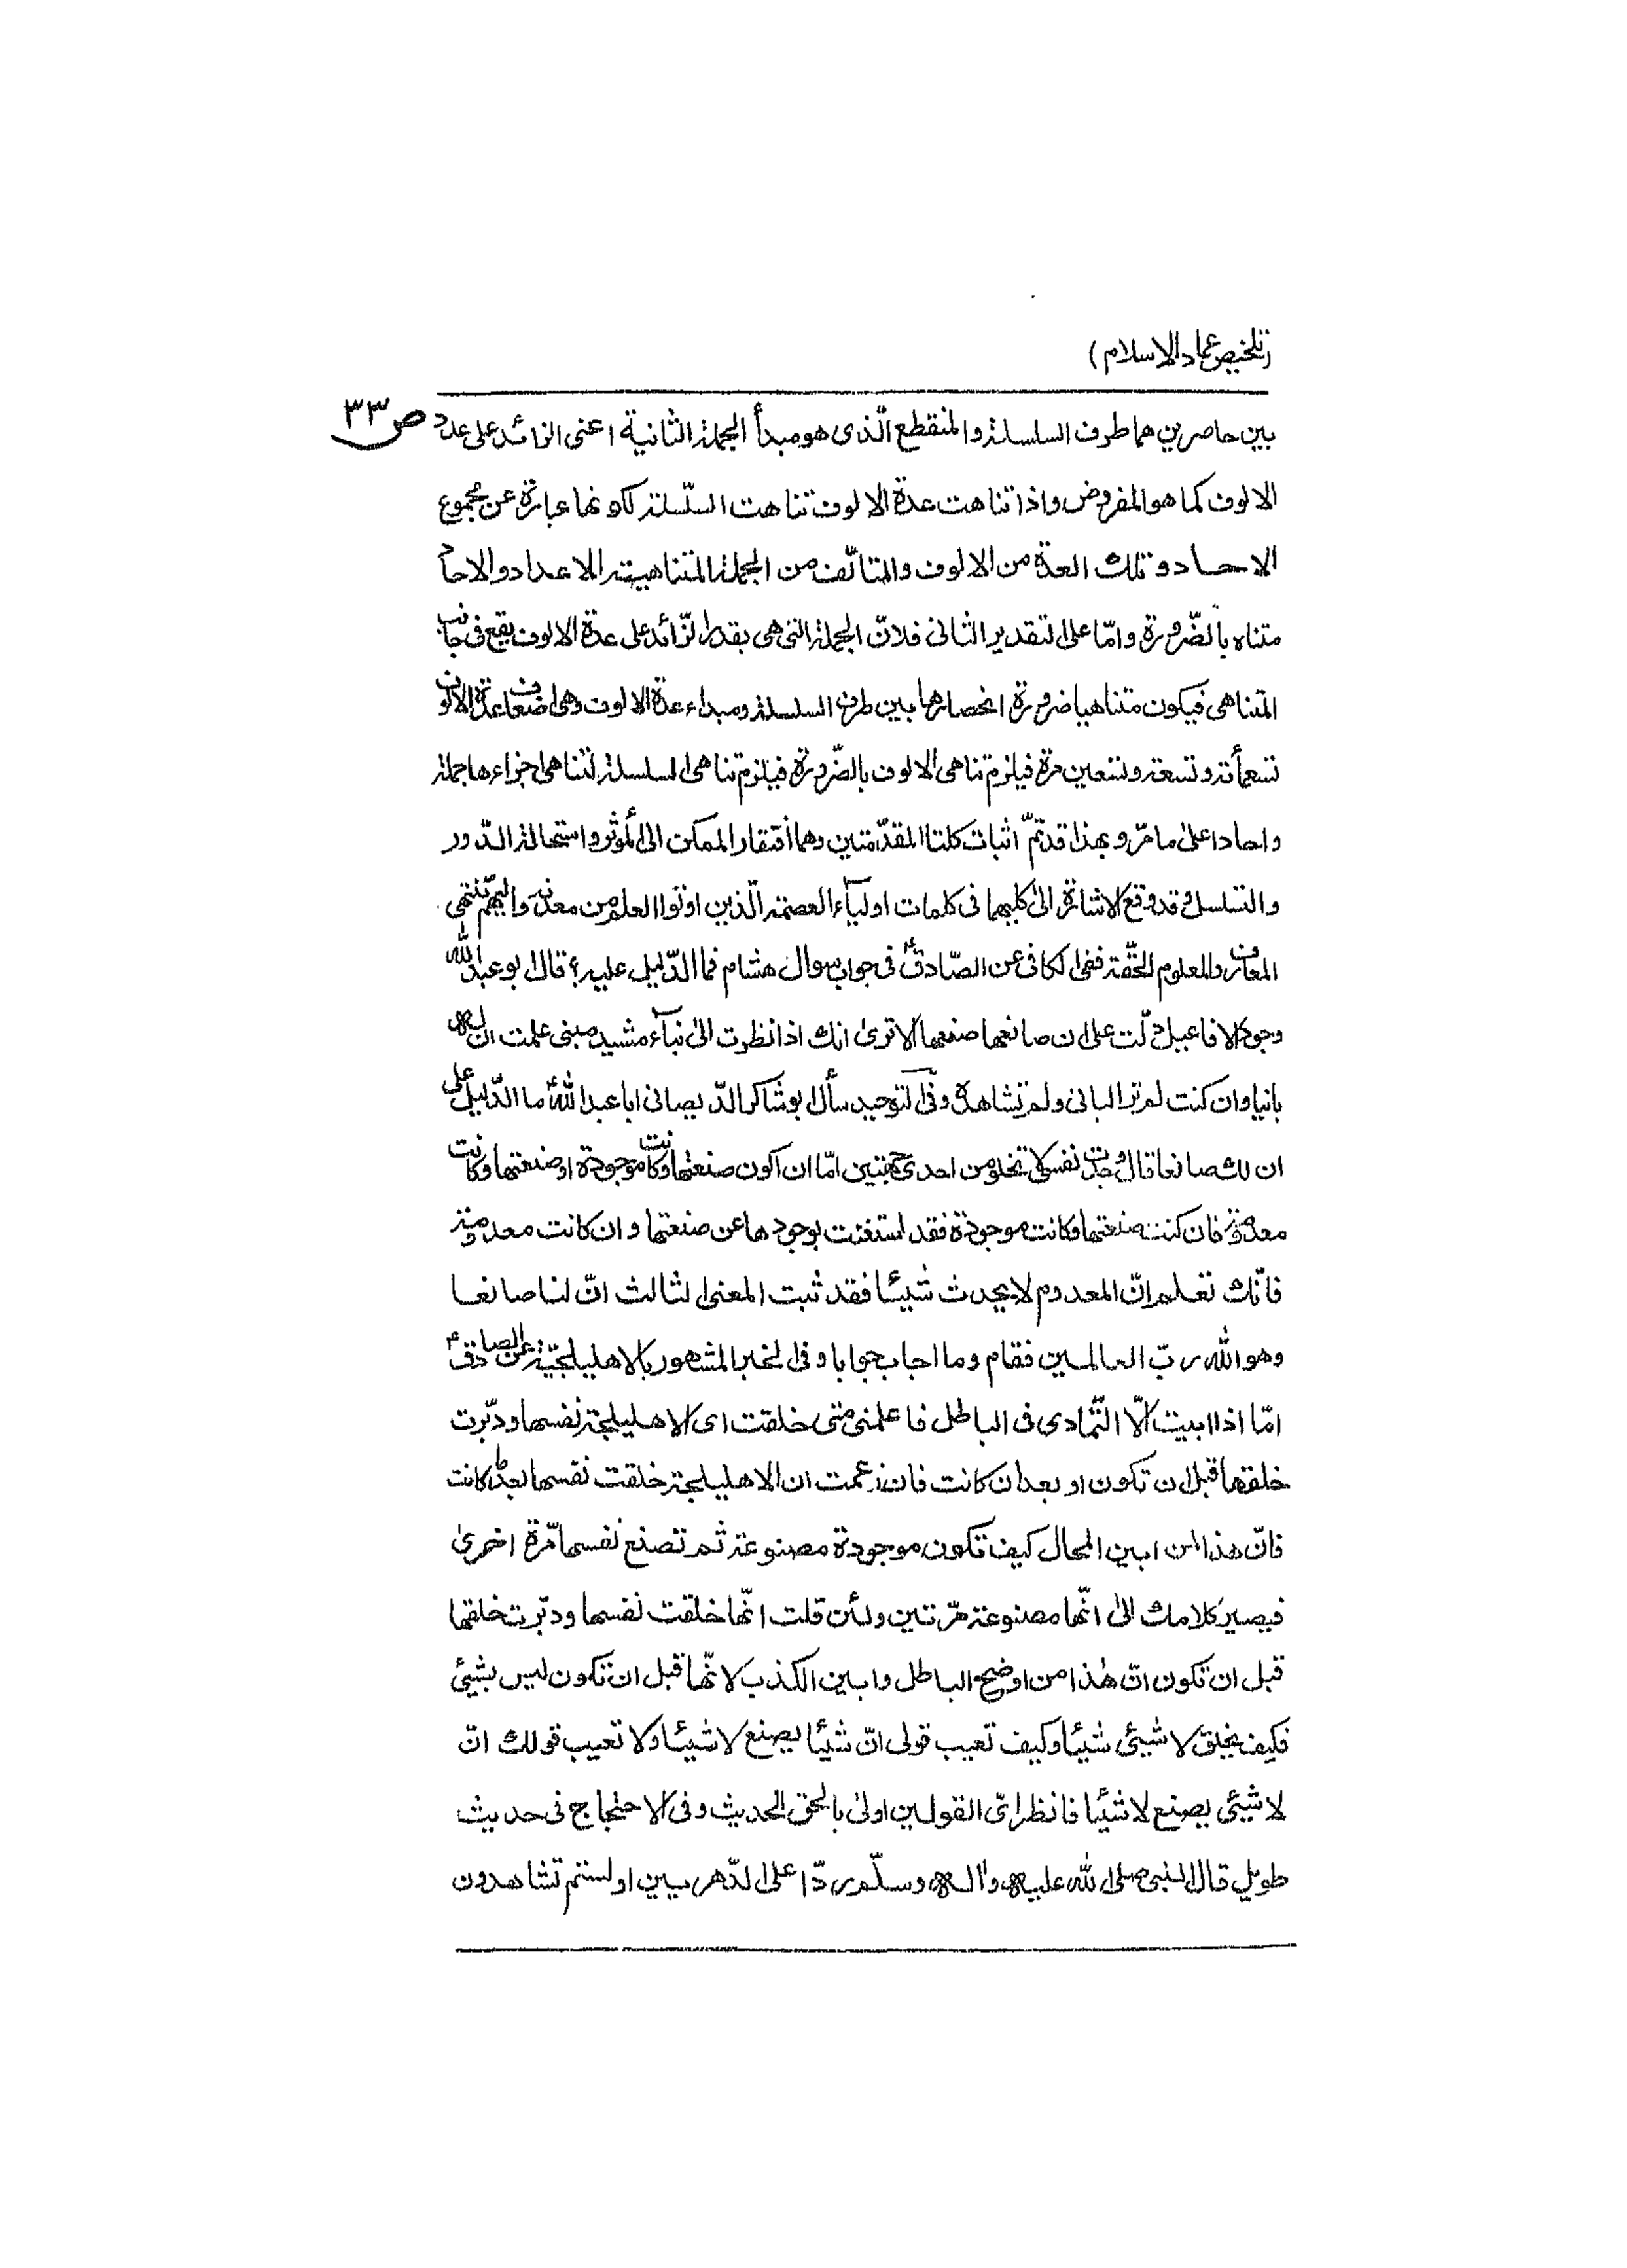 (تلخيص عماد الاسلام)
ص ٣٣
بين حاصرين هما طرف السلسلة والمنقطع الّذى هو مبدأ الجملة الثانية اعنى الزائد على عدد
الالوف كما هو المفروض واذا تناهت عدة الالوف تناهت السّلسلة لكونها عبارة عن مجموع
الاحاد وتلك العدة من الالوف والمتالّف من الجملة المتناهية الاعداد والاحاد
متناه بالضّرورة وامّا على التقدير الثانى فلانّ الجملة التى هى بقدر الزّائد على عدة الالوف يقع فى جانب
المتناهى فيكون متناهيا ضرورة انحصارها بين طرف السلسلة ومبداء عدة الالوف وهى اضعاف عدة الالوف
تسعمأئة وتسعة وتسعين مرة فيلزم تناهى الالوف بالضّرورة فيلزم تناهى السلسلة لتناهى اجزاءها جملة
واحادا على ما مرّ وبهذا قد تمّ اثبات كلتا المقدّمتين وهما افتقار الممكن الى المؤثر واستحالة الدّور
والتسلسل وقد وقع الاشارة الى كليهما فى كلمات اوليآء العصمة الّذين اوتوا العلم من معدنه واليهم تنتهى
المعارف والعلوم الحقّة ففى الكافى عن الصّادق ع فى جواب سوال هشام فما الدّليل عليه؟ قال ابو عبد الله
وجود الافاعيل دلّت على ان صانعها صنعها الا ترى انك اذا نظرت الى بنآء مشيد مبنى علمت ان له
بانيا وان كنت لم تر البانى ولم تشاهده وفى التوحيد سأل ابو شاكر الدّيصانى ابا عبد الله ع ما الدّليل على
ان لك صانعا قال وجدت نفسى لا تخلو من احدى جهتين امّا ان اكون صنعتها وكانت موجودة او صنعتها وكانت
معدومة فان كنت صنعتها وكانت موجودة فقد استغنت بوجودها عن صنعتها وان كانت معدومة
فانّك تعلم انّ المعدوم لا يحدث شيئا فقد ثبت المعنى الثالث انّ لنا صانعا
وهو الله ربّ العالمين فقام وما اجاب جوابا وفى الخبر المشهور بالاهليلجيّة عن الصادق ع
امّا اذا ابيت الّا التّمادى فى الباطل فاعلمنى متى خلقت اى الاهليلجة نفسها ودبّرت
خلقها قبل ان تكون او بعد ان كانت فان زعمت ان الاهليلجة خلقت نفسها بعد ما كانت
فانّ هذا لمن ابين المحال كيف تكون موجودة مصنوعة ثم تصنع نفسها مرّة اخرى
فيصير كلامك الى انّها مصنوعة مرّتين ولئن قلت انّها خلقت نفسها ودبّرت خلقها
قبل ان تكون انّ هٰذا من اوضح الباطل وابين الكذب لانّها قبل ان تكون ليس بشيئ
فكيف يخلق لا شيئى شيئا وكيف تعيب قولى انّ شيئا يصنع لا شيئا ولا تعيب قولك انّ
لا شيئى يصنع لا شيئا فانظر اىّ القولين اولى بالحق الحديث وفى الاحتجاج فى حديث
طويل قال النبى صلى الله عليه واله وسلّم ردّا على الدّهريين اولستم تشاهدون